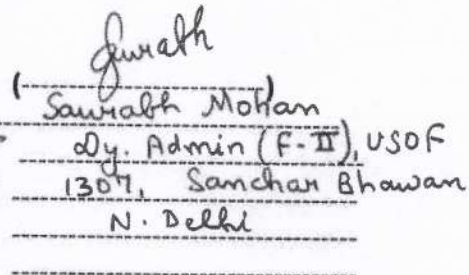 Saurabh
( )
Saurabh Mohan
Dy. Admin (F-II), USOF
1307, Sanchar Bhawan
N. Delhi